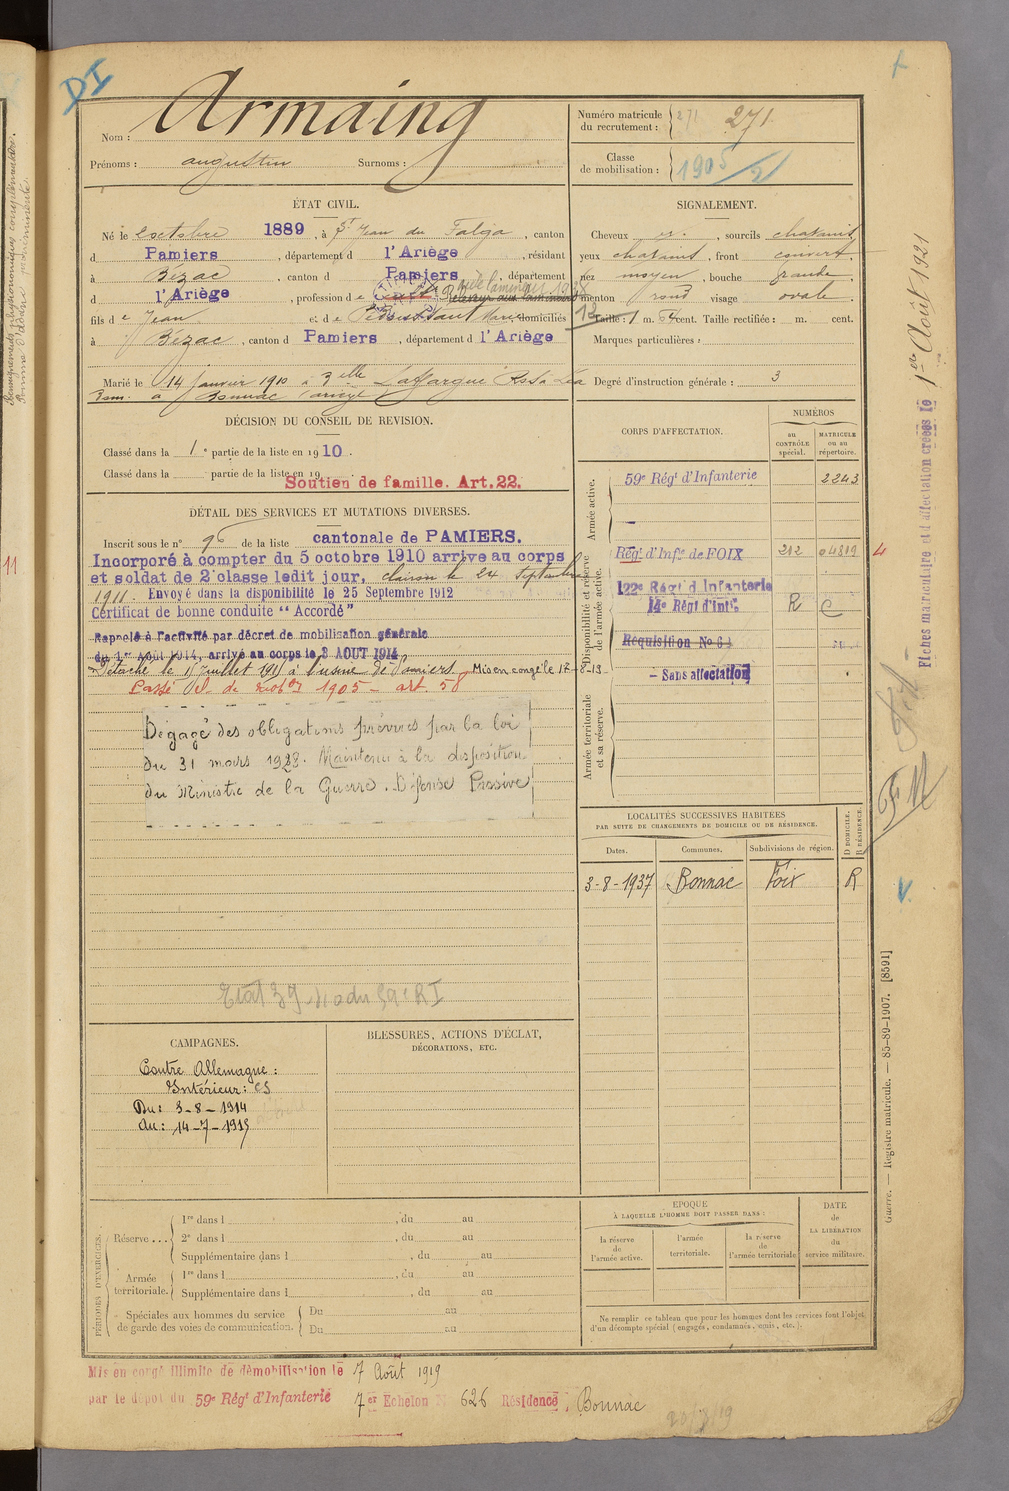 DI
Nom : Armaing
Prénoms : augustin Surnoms :
Numéro matricule du recrutement : 271 271
Classe de mobilisation : 1905
ÉTAT CIVIL.
Né le 2 octobre 1889, à St Jean du Falga, canton
d Pamiers, département d l'Ariège, résidant
à Bézac, canton d Pamiers, département
d l'Ariège, profession de
fils de Jean et de domiciliés
à Bézac, canton d Pamiers, département d l'Ariège
Marié le 14 Janvier 1910 à Melle Laffargue Rosa Léa
à Bonnac ariège
SIGNALEMENT.
Cheveux , sourcils chatains
yeux chatains, front couvert
nez moyen, bouche grande,
menton rond visage ovale
Taille : 1 m. 64 cent. Taille rectifiée : m. cent.
Marques particulières :
Degré d'instruction générale : 3
DÉCISION DU CONSEIL DE REVISION.
Classé dans la 1e partie de la liste en 1910.
Classé dans la partie de la liste en 19
Soutien de famille. Art. 22.
DÉTAIL DES SERVICES ET MUTATIONS DIVERSES.
Inscrit sous le n° 96 de la liste cantonale de PAMIERS.
Incorporé à compter du 5 octobre 1910 arrivé au corps
et soldat de 2e classe ledit jour, clairon le 24 Septembre
1911. Envoyé dans la disponibilité le 25 Septembre 1912
Certificat de bonne conduite "Accordé"
Rappelé à l'activité par décret de mobilisation générale
du 1er Août 1914, arrivé au corps le 3 AOUT 1914
Détaché le 15 Juillet 1915 à l'usine de Pamiers. Mis en congé le 17-8-19
Passé cl. de 1905 - art. 58
Dégagé des obligations prévues par la loi
du 31 mars 1928. Maintenu à la disposition
du Ministre de la Guerre. Défense Passive
CORPS D'AFFECTATION.
NUMÉROS
au CONTRÔLE spécial.
MATRICULE ou au répertoire.
Armée active.
59e Régt d'Infanterie 2243
Disponibilité et réserve de l'armée active.
Régt d'Infie de FOIX 212 04819
122e Régt d'Infanterie
14e Régt d'Infie R C
Réquisition No 61
- Sans affectation
Armée territoriale et sa réserve.
LOCALITÉS SUCCESSIVES HABITÉES
PAR SUITE DE CHANGEMENTS DE DOMICILE OU DE RÉSIDENCE.
Dates. Communes. Subdivisions de région. D DOMICILE. R RÉSIDENCE.
3-8-1937 Bonnac Foix R
CAMPAGNES.
Contre Allemagne :
Intérieur : CS
Du : 3-8-1914
Au : 14-7-1915
BLESSURES, ACTIONS D'ÉCLAT,
DÉCORATIONS, ETC.
PÉRIODES D'EXERCICES.
Réserve ...
1re dans l , du au
2e dans l , du au
Supplémentaire dans l , du au
Armée territoriale.
1re dans l , du au
Supplémentaire dans l , du au
Spéciales aux hommes du service de garde des voies de communication.
Du au
Du au
ÉPOQUE
À LAQUELLE L'HOMME DOIT PASSER DANS :
la réserve de l'armée active.
l'armée territoriale.
la réserve de l'armée territoriale
DATE de LA LIBÉRATION du service militaire.
Ne remplir ce tableau que pour les hommes dont les services font l'objet
d'un décompte spécial (engagés, condamnés, omis, etc.).
Mis en congé illimité de démobilisation le 7 Août 1919
par le dépôt du 59e Régt d'Infanterie 7er Echelon N 626 Résidence, Bonnac
Fiches matriculaire et d'affectation créées le 1er Août 1921
Guerre. — Registre matricule. — 85-89-1907. [8591]
11